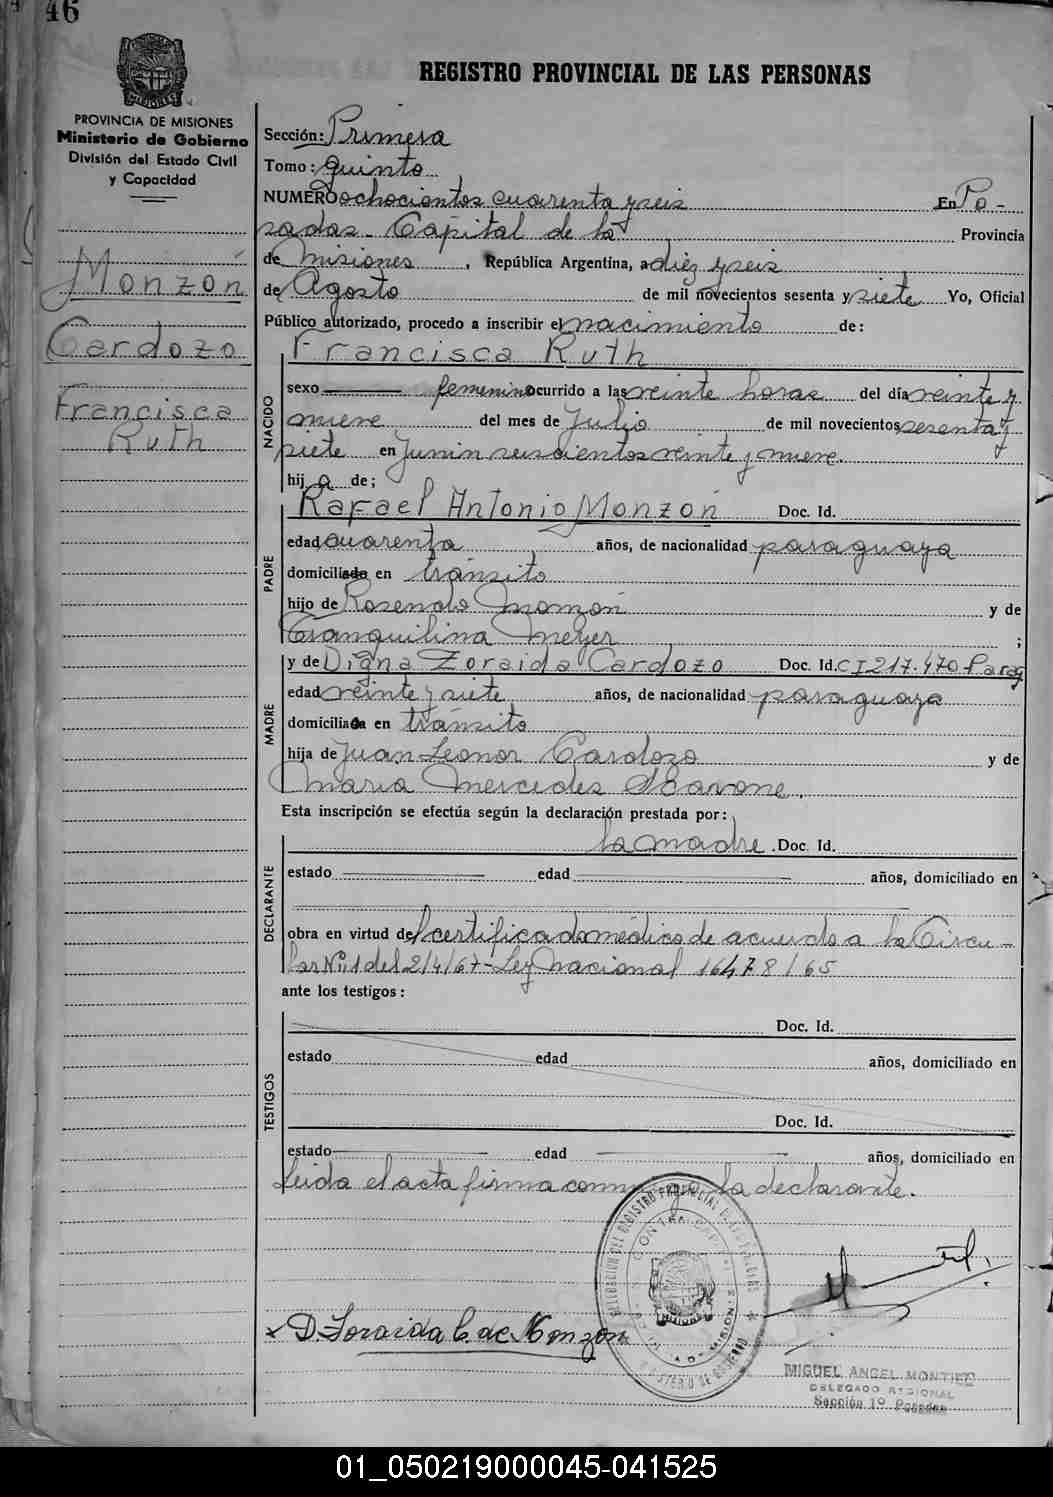 46
REGISTRO PROVINCIAL DE LAS PERSONAS
PROVINCIA DE MISIONES
Ministerio de Gobierno
División del Estado Civil
y Capacidad
Monzón
Cardozo
Francisca
Ruth
Sección: Primera
Tomo: Quinto
NUMERO ochocientos cuarenta y seis En Po-
sadas - Capital de la Provincia
de Misiones, República Argentina, a diez y seis
de Agosto de mil novecientos sesenta y siete Yo, Oficial
Público autorizado, procedo a inscribir el nacimiento de:
Francisca Ruth
NACIDO
sexo femenino ocurrido a las veinte horas del día veinte y
nueve del mes de Julio de mil novecientos sesenta y
siete en Junin seiscientos veinte y nueve.
hija de;
PADRE
Rafael Antonio Monzón Doc. Id.
edad cuarenta años, de nacionalidad paraguaya
domiciliado en tránsito
hijo de Rosendo Monzón y de
Tranquilina Meyer ;
MADRE
y de Digna Zoraida Cardozo Doc. Id. CI 217.470 Parag
edad veinte y siete años, de nacionalidad paraguaya
domiciliada en tránsito
hija de Juan Leonor Cardozo y de
María Mercedes
Esta inscripción se efectúa según la declaración prestada por:
DECLARANTE
la madre. Doc. Id.
estado edad años, domiciliado en
obra en virtud del certificado médico de acuerdo a la Circu-
lar Nº 11 del 2/4/67 - Ley Nacional 16478/65
ante los testigos:
TESTIGOS
Doc. Id.
estado edad años, domiciliado en
Doc. Id.
estado edad años, domiciliado en
Leida el acta firma conmigo la declarante.
x D. Zoraida C. de Monzon
MIGUEL ANGEL MONTIEL
DELEGADO REGIONAL
Sección 1º Posadas
01_050219000045-041525